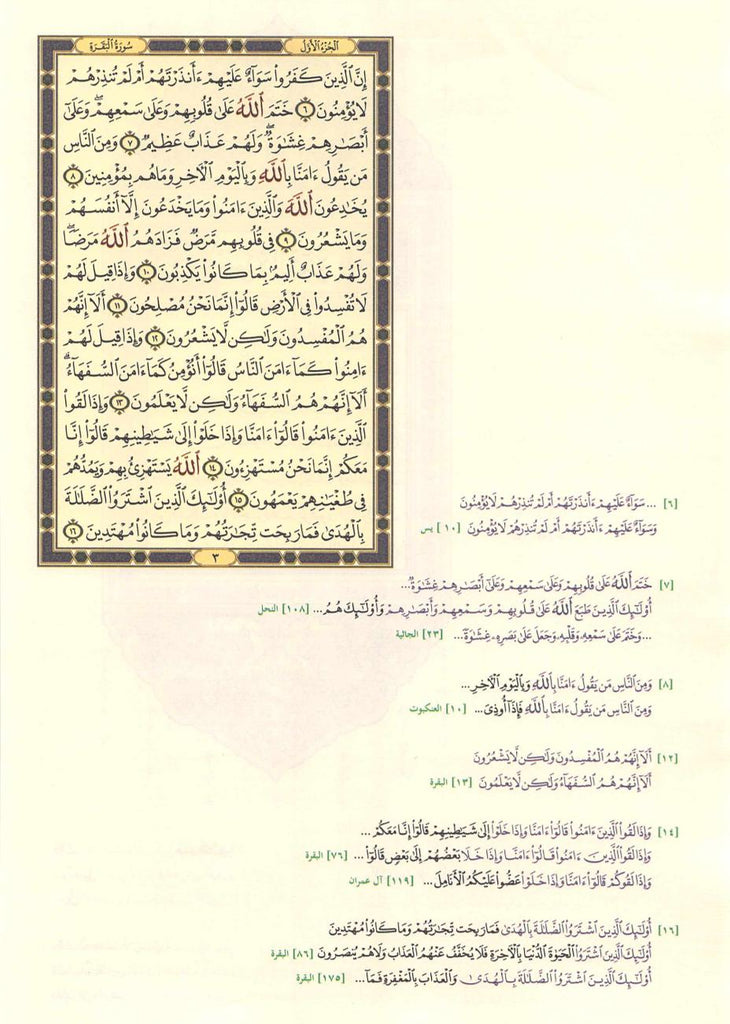 الجزء الأول
سورة البقرة
إِنَّ ٱلَّذِينَ كَفَرُوا۟ سَوَآءٌ عَلَيْهِمْ ءَأَنذَرْتَهُمْ أَمْ لَمْ تُنذِرْهُمْ
لَا يُؤْمِنُونَ ٦ خَتَمَ ٱللَّهُ عَلَىٰ قُلُوبِهِمْ وَعَلَىٰ سَمْعِهِمْ ۖ وَعَلَىٰٓ
أَبْصَٰرِهِمْ غِشَٰوَةٌ ۖ وَلَهُمْ عَذَابٌ عَظِيمٌ ٧ وَمِنَ ٱلنَّاسِ
مَن يَقُولُ ءَامَنَّا بِٱللَّهِ وَبِٱلْيَوْمِ ٱلْءَاخِرِ وَمَا هُم بِمُؤْمِنِينَ ٨
يُخَٰدِعُونَ ٱللَّهَ وَٱلَّذِينَ ءَامَنُوا۟ وَمَا يَخْدَعُونَ إِلَّآ أَنفُسَهُمْ
وَمَا يَشْعُرُونَ ٩ فِى قُلُوبِهِم مَّرَضٌ فَزَادَهُمُ ٱللَّهُ مَرَضًا ۖ
وَلَهُمْ عَذَابٌ أَلِيمٌۢ بِمَا كَانُوا۟ يَكْذِبُونَ ١٠ وَإِذَا قِيلَ لَهُمْ
لَا تُفْسِدُوا۟ فِى ٱلْأَرْضِ قَالُوٓا۟ إِنَّمَا نَحْنُ مُصْلِحُونَ ١١ أَلَآ إِنَّهُمْ
هُمُ ٱلْمُفْسِدُونَ وَلَٰكِن لَّا يَشْعُرُونَ ١٢ وَإِذَا قِيلَ لَهُمْ
ءَامِنُوا۟ كَمَآ ءَامَنَ ٱلنَّاسُ قَالُوٓا۟ أَنُؤْمِنُ كَمَآ ءَامَنَ ٱلسُّفَهَآءُ ۗ
أَلَآ إِنَّهُمْ هُمُ ٱلسُّفَهَآءُ وَلَٰكِن لَّا يَعْلَمُونَ ١٣ وَإِذَا لَقُوا۟
ٱلَّذِينَ ءَامَنُوا۟ قَالُوٓا۟ ءَامَنَّا وَإِذَا خَلَوْا۟ إِلَىٰ شَيَٰطِينِهِمْ قَالُوٓا۟ إِنَّا
مَعَكُمْ إِنَّمَا نَحْنُ مُسْتَهْزِءُونَ ١٤ ٱللَّهُ يَسْتَهْزِئُ بِهِمْ وَيَمُدُّهُمْ
فِى طُغْيَٰنِهِمْ يَعْمَهُونَ ١٥ أُو۟لَٰٓئِكَ ٱلَّذِينَ ٱشْتَرَوُا۟ ٱلضَّلَٰلَةَ
بِٱلْهُدَىٰ فَمَا رَبِحَت تِّجَٰرَتُهُمْ وَمَا كَانُوا۟ مُهْتَدِينَ ١٦
٣
[٦] ... سَوَآءٌ عَلَيْهِمْ ءَأَنذَرْتَهُمْ أَمْ لَمْ تُنذِرْهُمْ لَا يُؤْمِنُونَ
وَسَوَآءٌ عَلَيْهِمْ ءَأَنذَرْتَهُمْ أَمْ لَمْ تُنذِرْهُمْ لَا يُؤْمِنُونَ [١٠] يس
[٧] خَتَمَ ٱللَّهُ عَلَىٰ قُلُوبِهِمْ وَعَلَىٰ سَمْعِهِمْ وَعَلَىٰٓ أَبْصَٰرِهِمْ غِشَٰوَةٌ...
أُو۟لَٰٓئِكَ ٱلَّذِينَ طَبَعَ ٱللَّهُ عَلَىٰ قُلُوبِهِمْ وَسَمْعِهِمْ وَأَبْصَٰرِهِمْ وَأُو۟لَٰٓئِكَ هُمُ... [١٠٨] النحل
...وَخَتَمَ عَلَىٰ سَمْعِهِۦ وَقَلْبِهِۦ وَجَعَلَ عَلَىٰ بَصَرِهِۦ غِشَٰوَةً... [٢٣] الجاثية
[٨] وَمِنَ ٱلنَّاسِ مَن يَقُولُ ءَامَنَّا بِٱللَّهِ وَبِٱلْيَوْمِ ٱلْءَاخِرِ...
وَمِنَ ٱلنَّاسِ مَن يَقُولُ ءَامَنَّا بِٱللَّهِ فَإِذَآ أُوذِىَ... [١٠] العنكبوت
[١٢] أَلَآ إِنَّهُمْ هُمُ ٱلْمُفْسِدُونَ وَلَٰكِن لَّا يَشْعُرُونَ
أَلَآ إِنَّهُمْ هُمُ ٱلسُّفَهَآءُ وَلَٰكِن لَّا يَعْلَمُونَ [١٣] البقرة
[١٤] وَإِذَا لَقُوا۟ ٱلَّذِينَ ءَامَنُوا۟ قَالُوٓا۟ ءَامَنَّا وَإِذَا خَلَوْا۟ إِلَىٰ شَيَٰطِينِهِمْ قَالُوٓا۟ إِنَّا مَعَكُمْ...
وَإِذَا لَقُوا۟ ٱلَّذِينَ ءَامَنُوا۟ قَالُوٓا۟ ءَامَنَّا وَإِذَا خَلَا بَعْضُهُمْ إِلَىٰ بَعْضٍ قَالُوٓا۟... [٧٦] البقرة
وَإِذَا لَقُوكُمْ قَالُوٓا۟ ءَامَنَّا وَإِذَا خَلَوْا۟ عَضُّوا۟ عَلَيْكُمُ ٱلْأَنَامِلَ... [١١٩] آل عمران
[١٦] أُو۟لَٰٓئِكَ ٱلَّذِينَ ٱشْتَرَوُا۟ ٱلضَّلَٰلَةَ بِٱلْهُدَىٰ فَمَا رَبِحَت تِّجَٰرَتُهُمْ وَمَا كَانُوا۟ مُهْتَدِينَ
أُو۟لَٰٓئِكَ ٱلَّذِينَ ٱشْتَرَوُا۟ ٱلْحَيَوٰةَ ٱلدُّنْيَا بِٱلْءَاخِرَةِ فَلَا يُخَفَّفُ عَنْهُمُ ٱلْعَذَابُ وَلَا هُمْ يُنصَرُونَ [٨٦] البقرة
أُو۟لَٰٓئِكَ ٱلَّذِينَ ٱشْتَرَوُا۟ ٱلضَّلَٰلَةَ بِٱلْهُدَىٰ وَٱلْعَذَابَ بِٱلْمَغْفِرَةِ فَمَآ... [١٧٥] البقرة